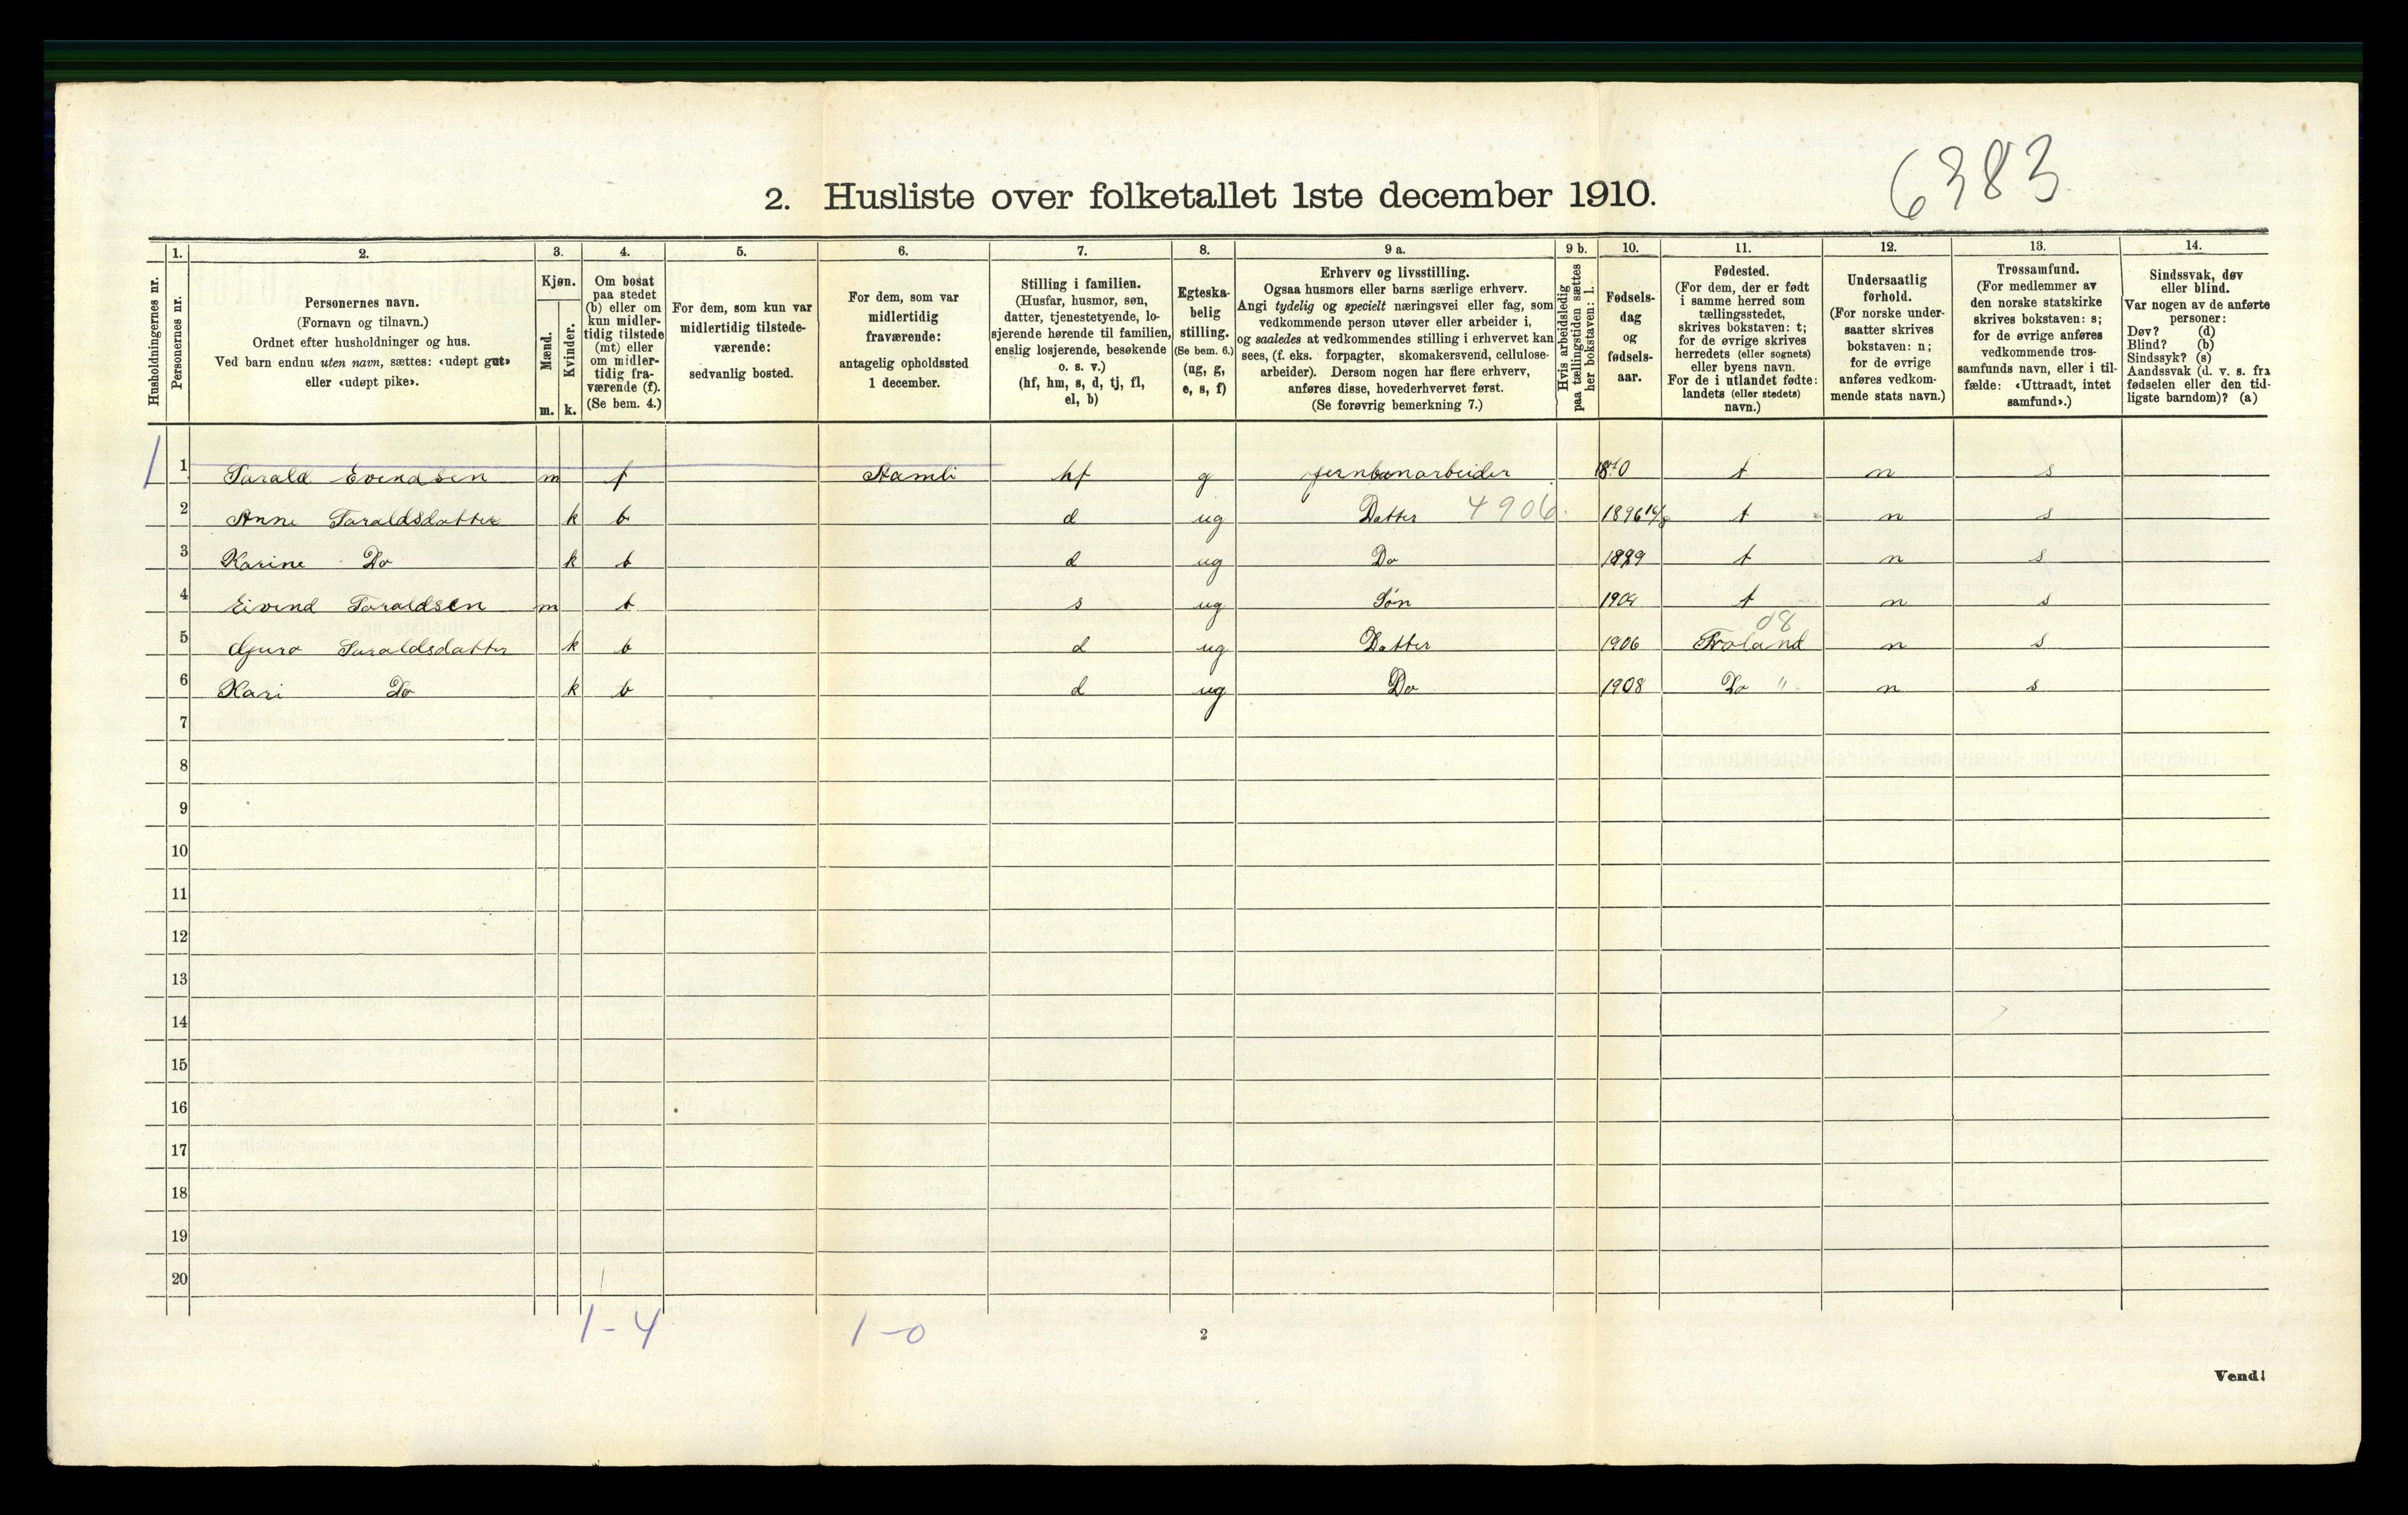 6383
2. Husliste over folketallet 1ste december 1910.
Husholdningernes nr.
1.
Personernes nr.
2.
Personernes navn.
(Fornavn og tilnavn.)
Ordnet efter husholdninger og hus.
Ved barn endnu uten navn, sættes: «udøpt gut»
eller «udøpt pike».
3.
Kjøn.
Mænd.
Kvinder.
m. k.
4.
Om bosat
paa stedet
(b) eller om
kun midler-
tidig tilstede
(mt) eller
om midler-
tidig fra-
værende (f).
(Se bem. 4.)
5.
For dem, som kun var
midlertidig tilstede-
værende:
sedvanlig bosted.
6.
For dem, som var
midlertidig
fraværende:
antagelig opholdssted
1 december.
7.
Stilling i familien.
(Husfar, husmor, søn,
datter, tjenestetyende, lo-
sjerende hørende til familien,
enslig losjerende, besøkende
o. s. v.)
(hf, hm, s, d, tj, fl,
el, b)
8.
Egteska-
belig
stilling.
(Se bem. 6.)
(ug, g,
e, s, f)
9 a.
Erhverv og livsstilling.
Ogsaa husmors eller barns særlige erhverv.
Angi tydelig og specielt næringsvei eller fag, som
vedkommende person utøver eller arbeider i,
og saaledes at vedkommendes stilling i erhvervet kan
sees, (f. eks. forpagter, skomakersvend, cellulose-
arbeider). Dersom nogen har flere erhverv,
anføres disse, hovederhvervet først.
(Se forøvrig bemerkning 7.)
9 b.
Hvis arbeidsledig
paa tællingstiden sættes
her bokstaven: l.
10.
Fødsels-
dag
og
fødsels-
aar.
11.
Fødested.
(For dem, der er født
i samme herred som
tællingsstedet,
skrives bokstaven: t;
for de øvrige skrives
herredets (eller sognets)
eller byens navn.
For de i utlandet fødte:
landets (eller stedets)
navn.)
12.
Undersaatlig
forhold.
(For norske under-
saatter skrives
bokstaven: n;
for de øvrige
anføres vedkom-
mende stats navn.)
13.
Trossamfund.
(For medlemmer av
den norske statskirke
skrives bokstaven: s;
for de øvrige anføres
vedkommende tros-
samfunds navn, eller i til-
fælde: «Uttraadt, intet
samfund».)
14.
Sindssvak, døv
eller blind.
Var nogen av de anførte
personer:
Døv? (d)
Blind? (b)
Sindssyk? (s)
Aandssvak (d. v. s. fra
fødselen eller den tid-
ligste barndom)? (a)
1 1 Tarald Evendsen m f Aamli hf g jernbanarbeider t n s
2 Anne Taraldsdatter k b d ug Datter 4906 1896 t n s
3 Karine Do k b d ug Do t n s
4 Eivind Taraldsen m b s ug Søn t n s
08
5 Gjuro Taraldsdatter k b d ug Datter 1906 Froland n s
6 Kari Do k b d ug Do 1908 Do " n s
7
8
9
10
11
12
13
14
15
16
17
18
19
20
1-4 1-0
2
Vend!